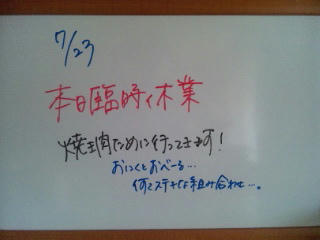 7/23
本日臨時休業
焼き肉ために行ってきます!
おにくとおべーる...
何てステキな組み合わせ...。